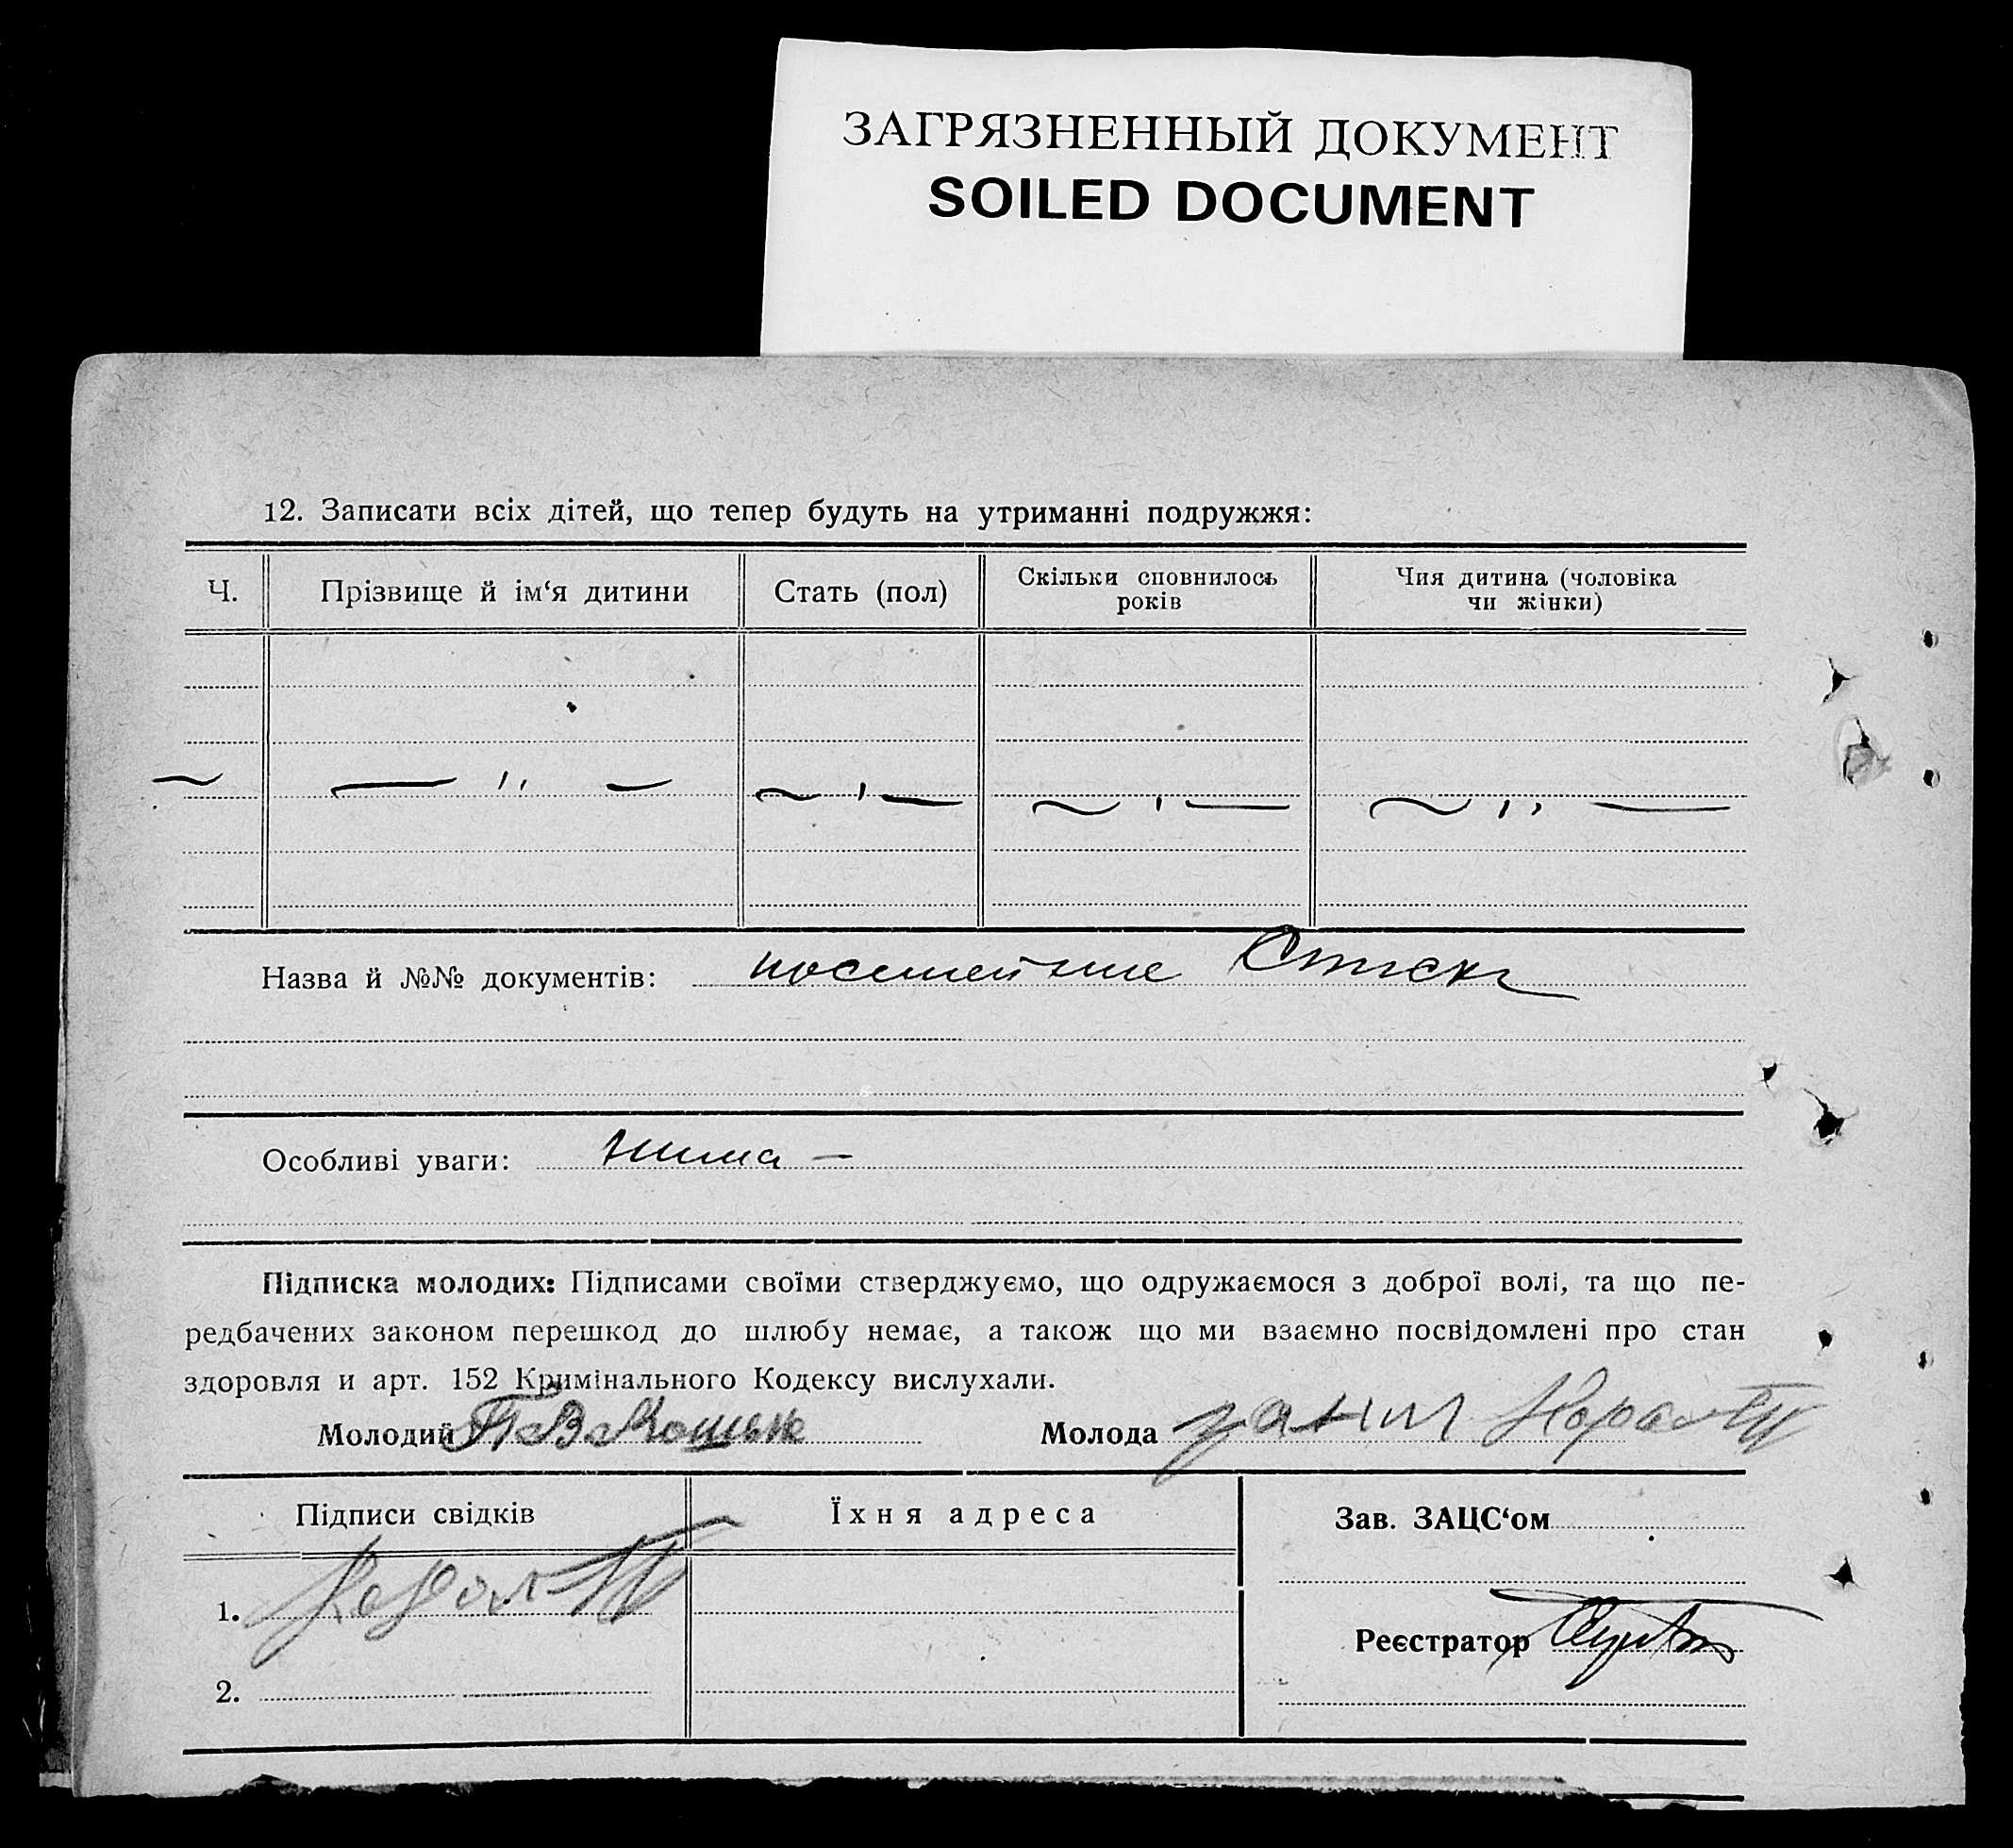 ЗАГРЯЗНЕННЫЙ ДОКУМЕНТ
SOILED DOCUMENT
12. Записати всіх дітей, що тепер будуть на утриманні подружжя:
Ч. Прізвище й ім‘я дитини Стать (пол) Скільки сповнилось років Чия дитина (чоловіка чи жінки)
— " — — " — — " — — " —
Назва й №№ документів: посемейние Список
Особливі уваги: нима —
Підписка молодих: Підписами своїми стверджуємо, що одружаємося з доброї волі, та що пе-
редбачених законом перешкод до шлюбу немає, а також що ми взаємно посвідомлені про стан
здоровля и арт. 152 Кримінального Кодексу вислухали.
Молодий Молода
Підписи свідків Їхня адреса Зав. ЗАЦС‘ом
1.
Реєстратор
2.